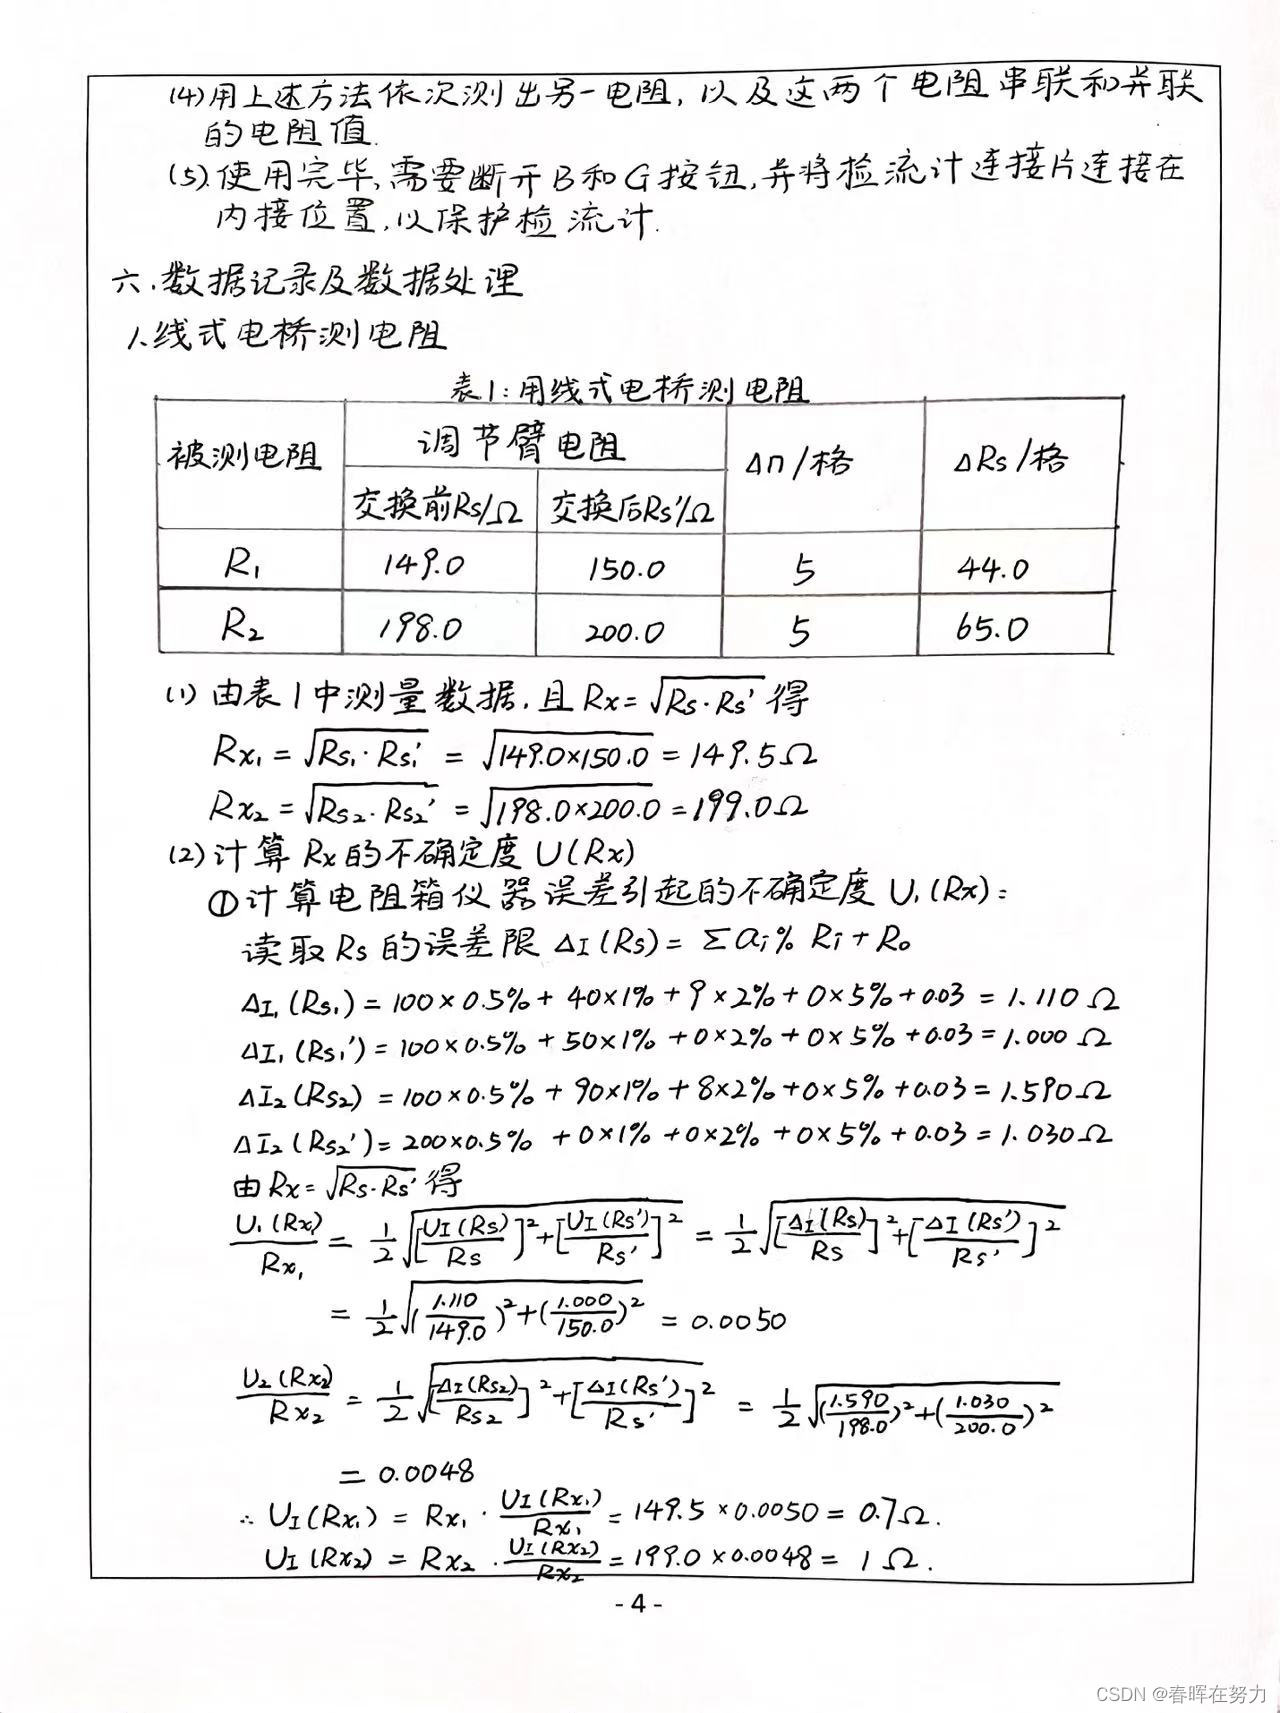 (4)用上述方法依次测出另一电阻,以及这两个电阻串联和并联
的电阻值.
(5).使用完毕,需要断开B和G按钮,并将检流计连接片连接在
内接位置,以保护检流计.
六.数据记录及数据处理
1.线式电桥测电阻
表1:用线式电桥测电阻
被测电阻 调节臂电阻 Δn/格 ΔRs/格
交换前Rs/Ω 交换后Rs'/Ω
R₁ 149.0 150.0 5 44.0
R₂ 198.0 200.0 5 65.0
(1)由表1中测量数据,且Rx=√(Rs·Rs')得
Rx₁=√(Rs₁·Rs₁')=√(149.0×150.0)=149.5Ω
Rx₂=√(Rs₂·Rs₂')=√(198.0×200.0)=199.0Ω
(2)计算Rx的不确定度U(Rx)
①计算电阻箱仪器误差引起的不确定度U₁(Rx):
读取Rs的误差限ΔI(Rs)=Σai% Ri+R₀
ΔI₁(Rs₁)=100×0.5%+40×1%+9×2%+0×5%+0.03=1.110Ω
ΔI₁(Rs₁')=100×0.5%+50×1%+0×2%+0×5%+0.03=1.000Ω
ΔI₂(Rs₂)=100×0.5%+90×1%+8×2%+0×5%+0.03=1.590Ω
ΔI₂(Rs₂')=200×0.5%+0×1%+0×2%+0×5%+0.03=1.030Ω
由Rx=√(Rs·Rs')得
U₁(Rx)/Rx₁=1/2√([UI(Rs)/Rs]²+[UI(Rs')/Rs']²)=1/2√([ΔI(Rs)/Rs]²+[ΔI(Rs')/Rs']²)
=1/2√((1.110/149.0)²+(1.000/150.0)²)=0.0050
U₂(Rx₂)/Rx₂=1/2√([ΔI(Rs₂)/Rs₂]²+[ΔI(Rs')/Rs']²)=1/2√((1.590/198.0)²+(1.030/200.0)²)
=0.0048
∴UI(Rx₁)=Rx₁·UI(Rx₁)/Rx₁=149.5×0.0050=0.7Ω.
UI(Rx₂)=Rx₂·UI(Rx₂)/Rx₂=199.0×0.0048=1Ω.
-4-
CSDN @春晖在努力